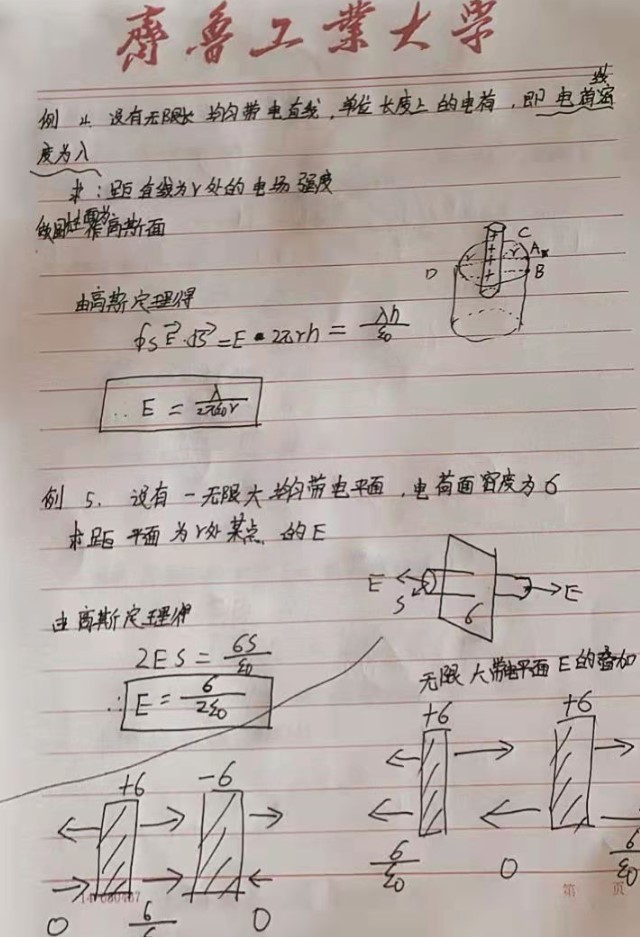 齊魯工業大学
例 4. 设有无限长均匀带电直线,单位长度上的电荷,即电荷线密
度为λ
求:距直线为r处的电场强度
作高斯面
C
A
B
D
r
由高斯定理得
∮s E⃗·dS⃗ = E·2πrh = λh/ε0
∴ E = λ/2πε0r
例 5. 设有一无限大均匀带电平面,电荷面密度为6
求距平面为r处某点的E
E S 6 E
由高斯定理得
2ES = 6S/ε0
∴ E = 6/2ε0
无限大带电平面E的叠加
+6 +6
6/ε0 0 6/ε0
+6 -6
0 0
第 页